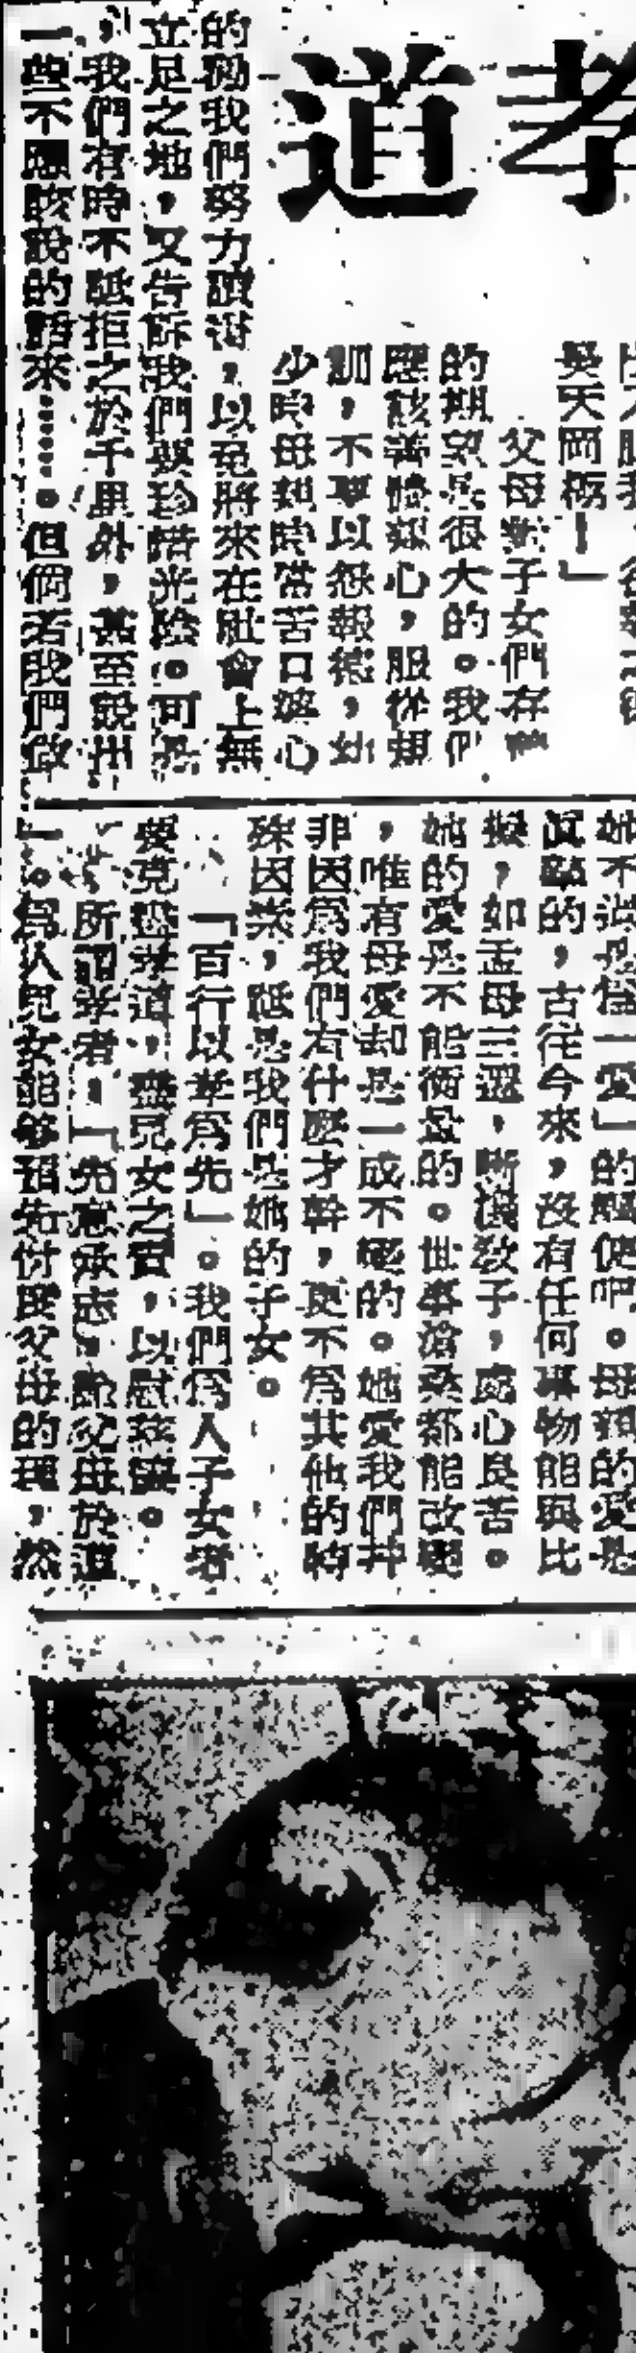 孝道
昊天罔極！」
父母對子女們存
的期望是很大的。我們
應該善體親心，服從規
訓，不要以怨報德，幼
少時母親時常苦口婆心
的勸我們努力讀書，以免將來在社會上無
立足之地，又告訴我們要珍惜光陰。可是
，我們有時不但拒之於千里外，甚至說出
一些不應該說的話來……。但倘若我們做
她不說是「愛」的
真誠的，古往今來，沒有任何事物能與比
擬，如孟母三遷，斷機教子，處心良苦。
她的愛是不能衡量的。世事滄桑都能改變
，唯有母愛却是一成不變的。她愛我們并
非因爲我們有什麼才幹，更不爲其他的特
殊因素，祗是我們是她的子女。
「百行以孝爲先」。我們爲人子女者
要克盡孝道，盡兒女之責，以慰慈懷。
所謂孝者！「先意承志，諭父母於道
」。爲人兒女能够預先忖度父母的理，然